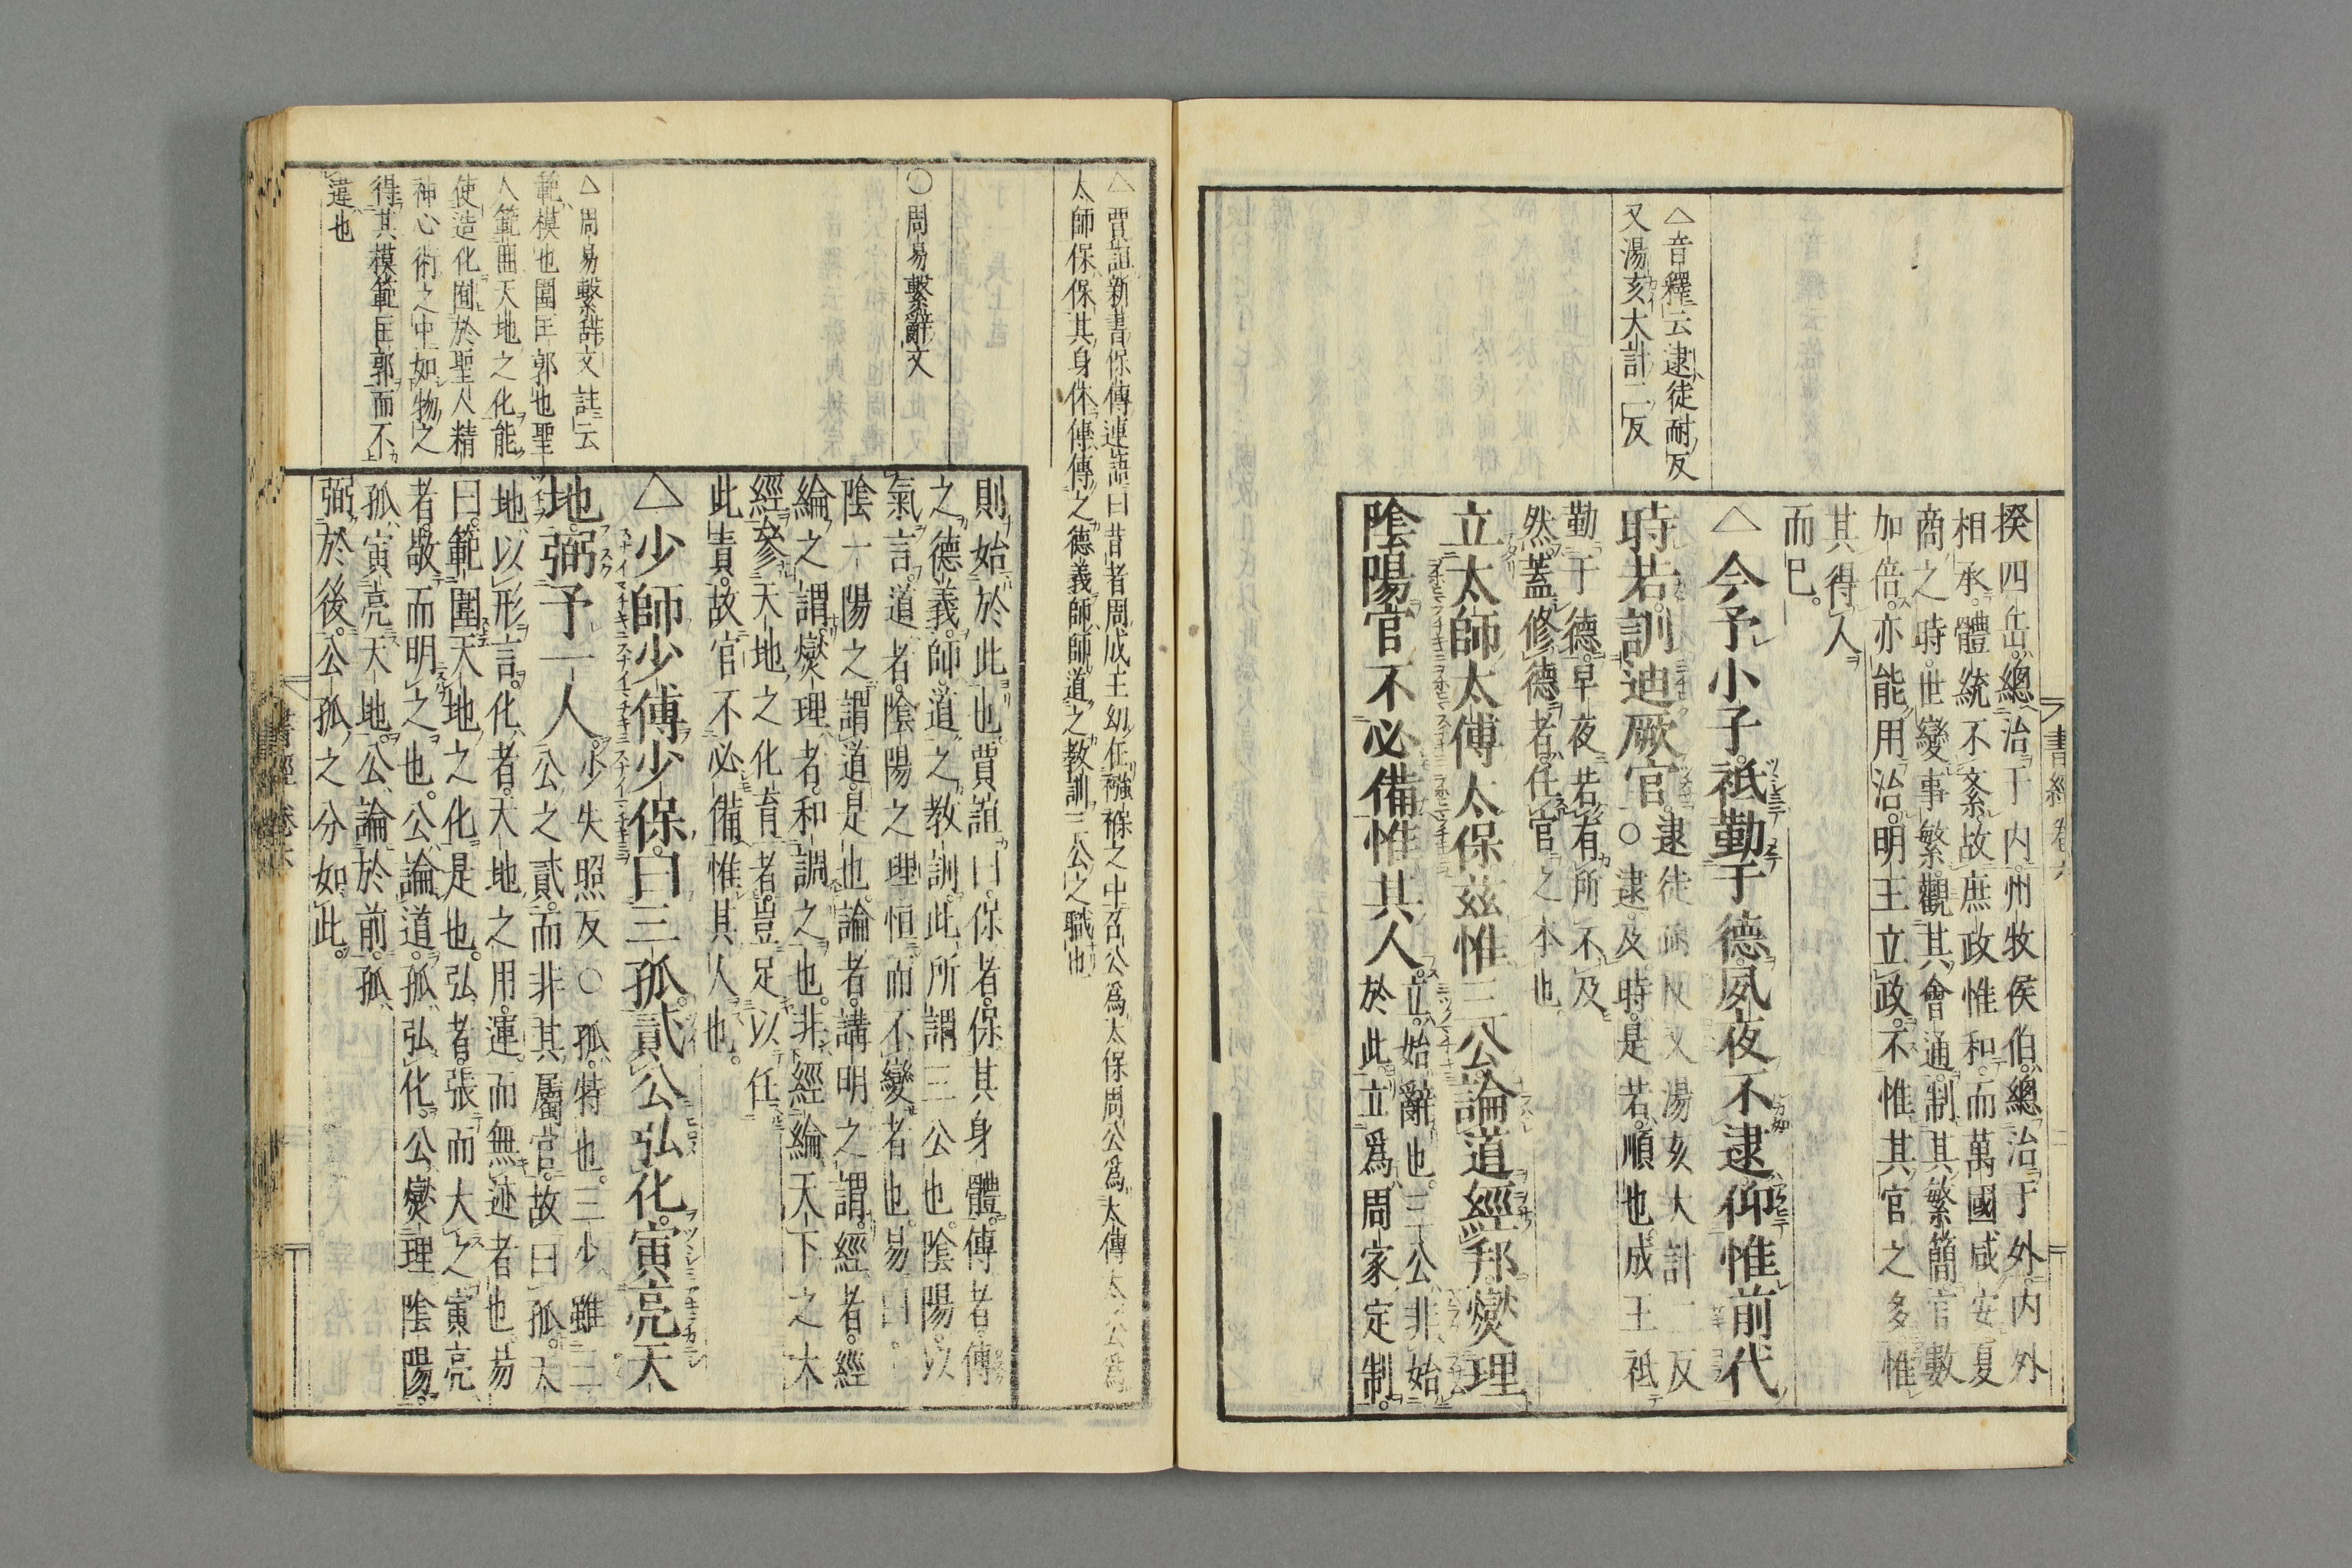 揆四岳總治于内州牧侯伯總治于外内外
相承體統不紊故庶政惟和而萬國咸安夏
商之時世變事繁觀其會通制其繁簡官數
加倍亦能用治明王立政不惟其官之多惟
其得人
而已。
△今予小子祗勤于德夙夜不逮仰惟前代
時若訓迪厥官
逮徒耐反又湯亥大計二反
○逮及時是若順也成王祗
勤于德早夜若有所不及
然蓋修德者任官之本也
立太師太傅太保茲惟三公論道經邦燮理
陰陽官不必備惟其人
立始辭也三公非始
於此立爲周家定制
△音釋云逮徒耐反
又湯亥大計二反
書經卷六
則始於此也賈誼曰保者保其身體傅者傅
之德義師道之教訓此所謂三公也陰陽以
氣言道者陰陽之理恒而不變者也易曰
陰一陽之謂道是也論者講明之謂經者經
綸之謂燮理者和調之也非經綸天下之大
經參天地之化育者豈足以任
此責故官不必備惟其人也
△少師少傅少保曰三孤貳公弘化寅亮天
地弼予一人
少失照反○孤特也三少雖三
公之貳而非其屬官故曰孤天
地以形言化者天地之用運而無迹者也易
曰範圍天地之化是也弘者張而大之寅亮
者敬而明之也公論道孤弘化公燮理陰陽
孤寅亮天地公論於前孤
弼於後公孤之分如此
△賈誼新書保傅連語曰昔者周成王幼在襁褓之中召公爲太保周公爲太傅太公爲
太師保保其身体傅傅之德義師師道之教訓三公之職也
○周易繫辭文
△周易繫辞文註云
範模也圍匡郭也聖
人範曲天地之化能
使造化囿於聖人精
神心術之中如物之
得其模範匡郭而不
違也
書經卷六